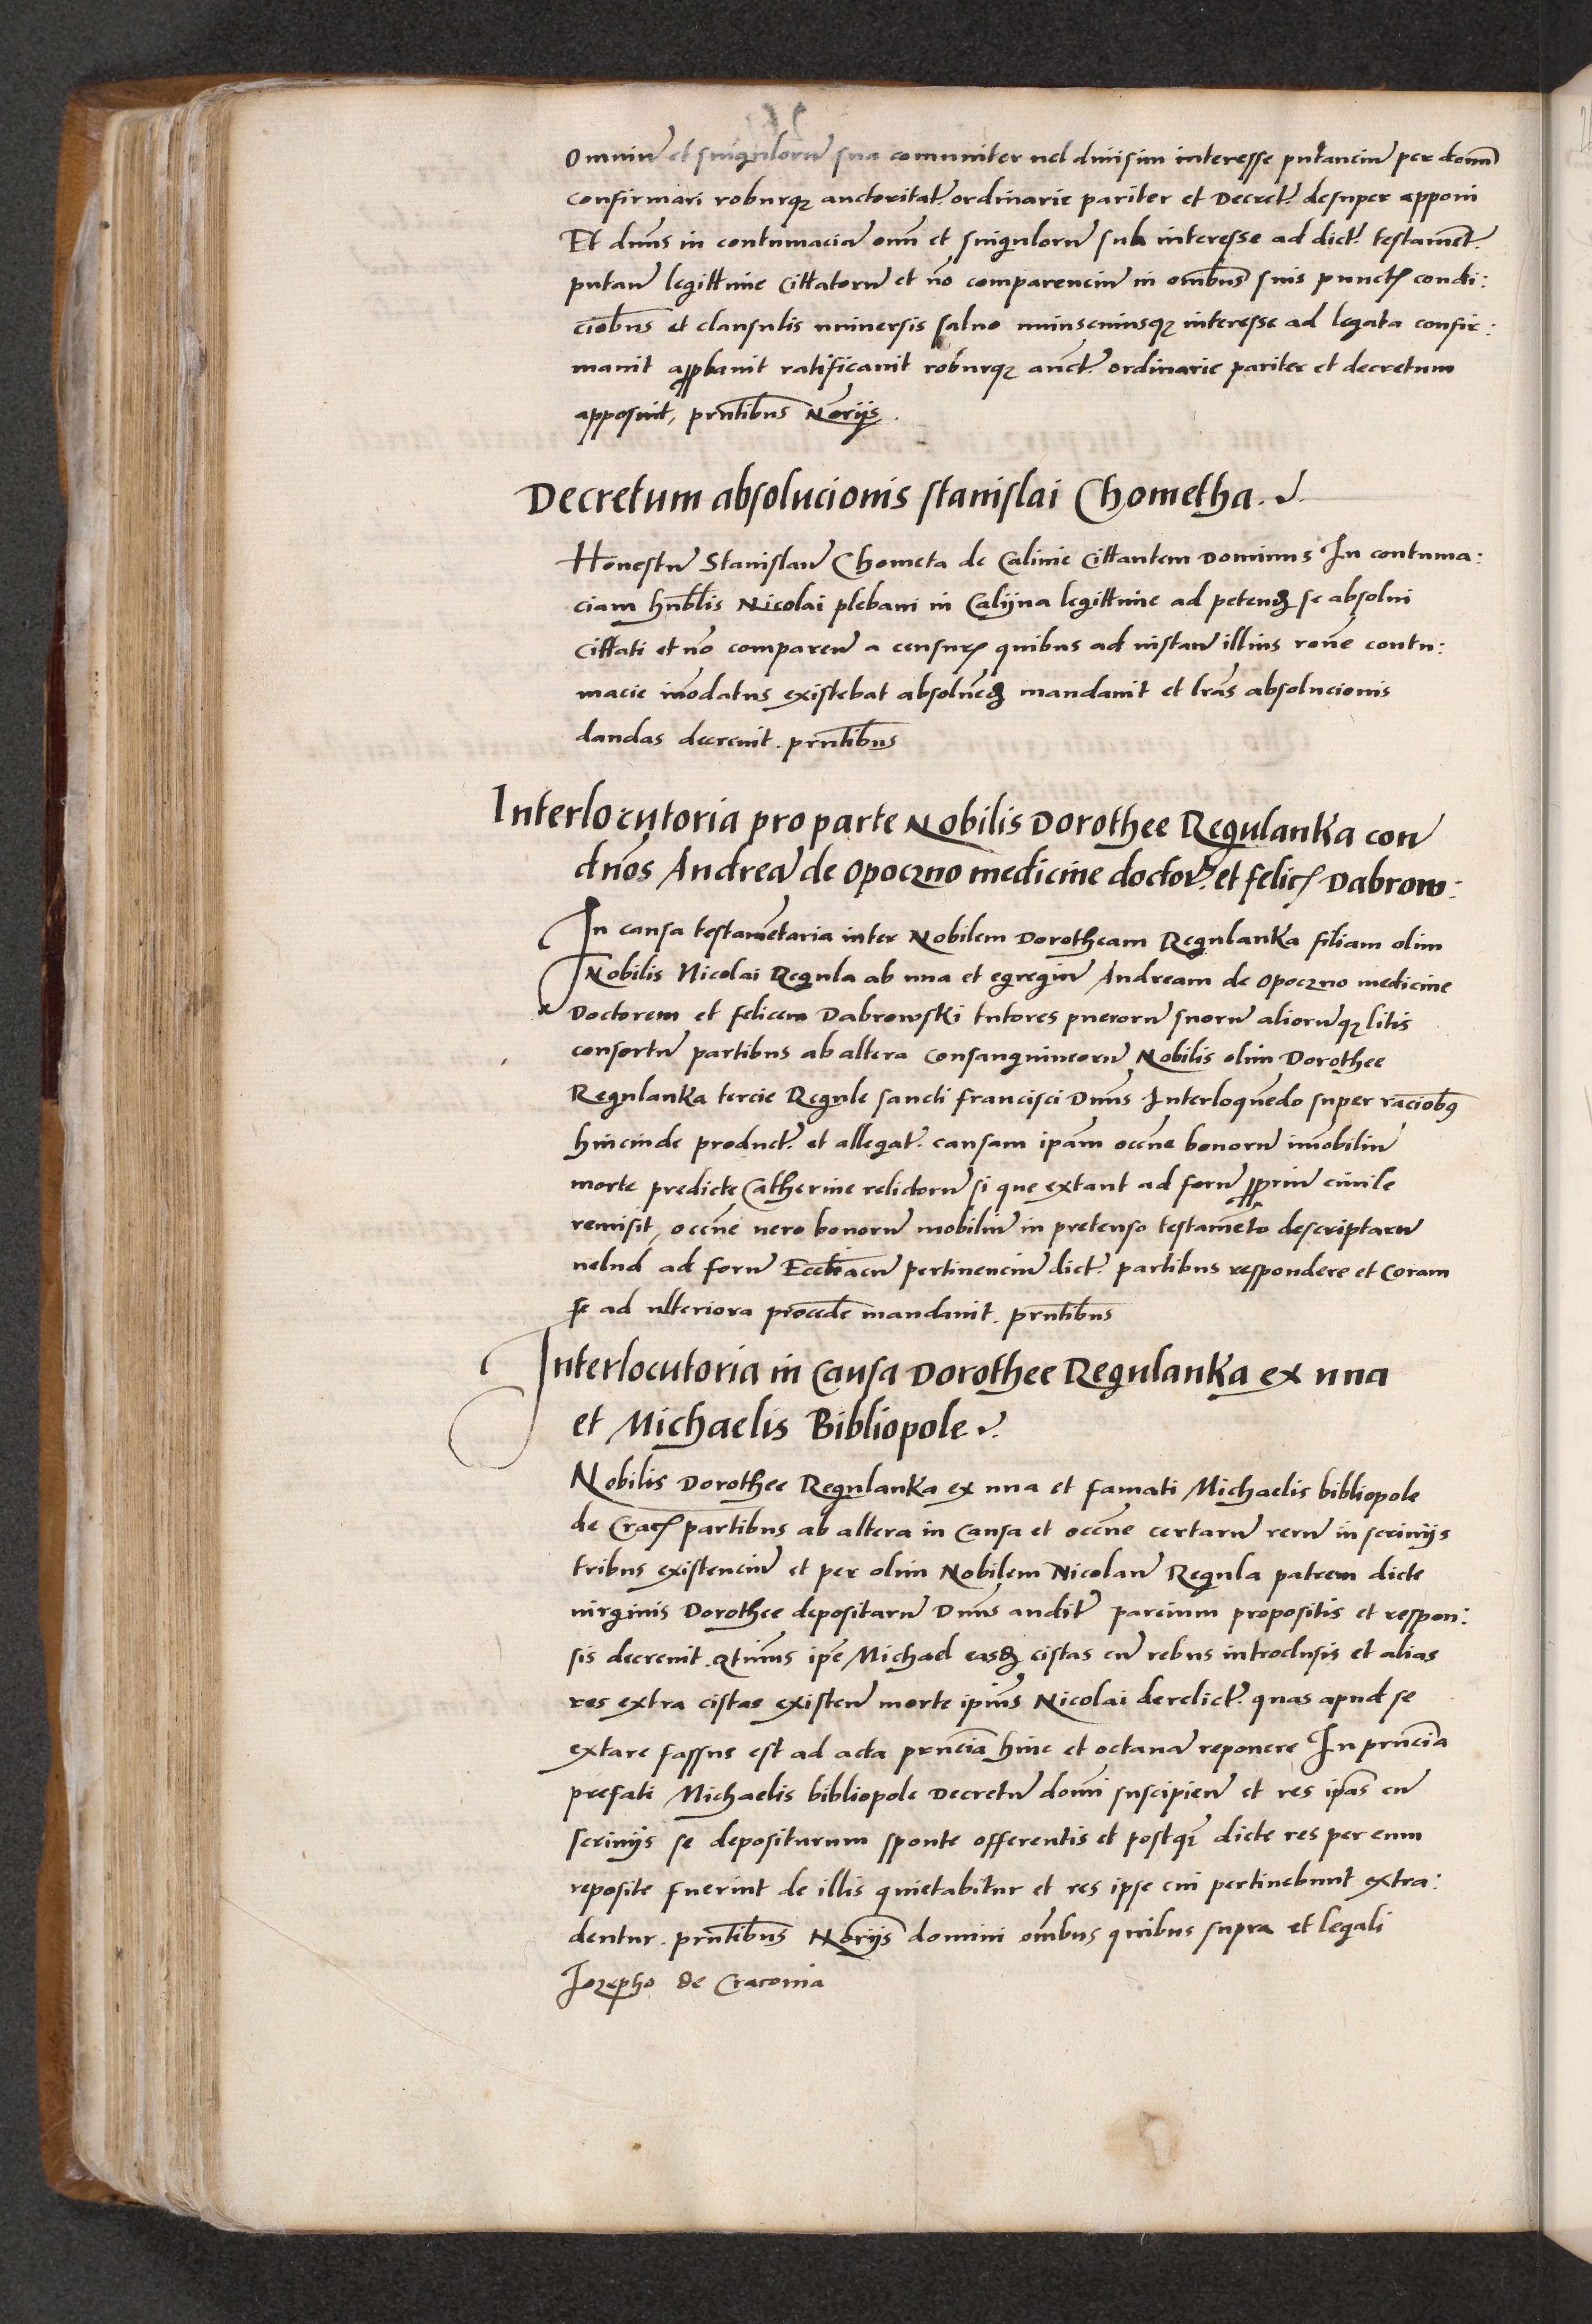 Omniu̅ et singuloru̅ sua com̅uniter vel diuisim interesse putanciu̅ per domi̅nu̅
confirmari roburqꝫ auctoritat. ordinarie pariter et Decret. desuper apponi
Et dn̅us in contumacia̅ om̅ et singuloru̅ sua interesse ad dict. testame̅t.
putan̅ legittime Cittatoru̅ et no̅ comparenciu̅ in om̅ibus suis punctꝭ condi:
cio̅bus et clausulis vniuersis saluo vniuscuiusqꝫ interesse ad legata confir:
mauit app̅bauit ratificauit roburqꝫ auct. ordinarie pariter et decretum
apposuit, prn̅tibus No̅rijs.
Decretum absolucionis stanislai Chometha.
Honestu̅ Stanislau̅ Chometa de Calinie Cittantem Dominus In contuma:
ciam hn̅blis Nicolai plebani in Calijna legittime ad petenꝺ se absolui
Cittati et no̅ comparen̅ a censurꝭ quibus ad instan̅ illius ro̅ne contu:
macie in̅odatus existebat absolue̅ꝺ mandauit et lr̅as absolucionis
dandas decreuit. prn̅tibus
Interlocutoria pro parte Nobilis Dorothee Regulanka con̅
dn̅os Andrea̅ de Opoczno medicine doctor. et felicꝭ Dabrow:
In causa testame̅taria inter Nobilem Dorotheam Regulanka filiam olim
Nobilis Nicolai Regula ab vna et egregiu̅ Andream de Opoczno medicine
Doctorem et felicem Dabrowski tutores pueroru̅ suoru̅ alioru̅qꝫ litis
consortu̅ partibus ab altera consanguineoru̅ Nobilis olim Dorothee
Regulanka tercie Regule sancti francisci Dn̅us Interloque̅do super racio̅bꝰ
hincinde product. et allegat. causam ipa̅m occ̅ne bonoru̅ im̅obiliu̅
morte predicte Catherine relictoru̅ si que extant ad foru̅ pp̅riu̅ ciuile
remisit, occ̅ne vero bonoru̅ mobiliu̅ in pretenso testame̅to descriptaru̅
velud ad foru̅ Eccl̅iacu̅ pertinenciu̅ dict. partibus respondere et Coram
se ad vlteriora procede̅ mandauit. prn̅tibus
Interlocutoria in Causa Dorothee Regulanka ex vna
et Michaelis Bibliopole.
Nobilis Dorothee Regulanka ex vna et famati Michaelis bibliopole
de Cracꝭ partibus ab altera in Causa et occ̅ne certaru̅ reru̅ in scrinijs
tribus existenciu̅ et per olim Nobilem Nicolau̅ Regula patrem dicte
virginis Dorothee depositaru̅ Dn̅us audit̅ parcium propositis et respon:
sis decreuit. qtin̅us ip̅e Michael easꝺ cistas cu̅ rebus introclusis et alias
res extra cistas existen̅ morte ipiu̅s Nicolai derelict. quas apud se
extare fassus est ad acta prn̅cia hinc et octaua̅ reponere In prn̅cia
prefati Michaelis bibliopole Decretu̅ domi̅ni suscipien̅ et res ip̅as cu̅
scrinijs se depositurum sponte offerentis et postqꝫ dicte res per eum
reposite fuerint de illis quietabitur et res ipse cui pertinebunt extra:
dentur. prn̅tibus No̅rijs domini om̅ibus quibus supra et legali
Iozepho de Cracouia